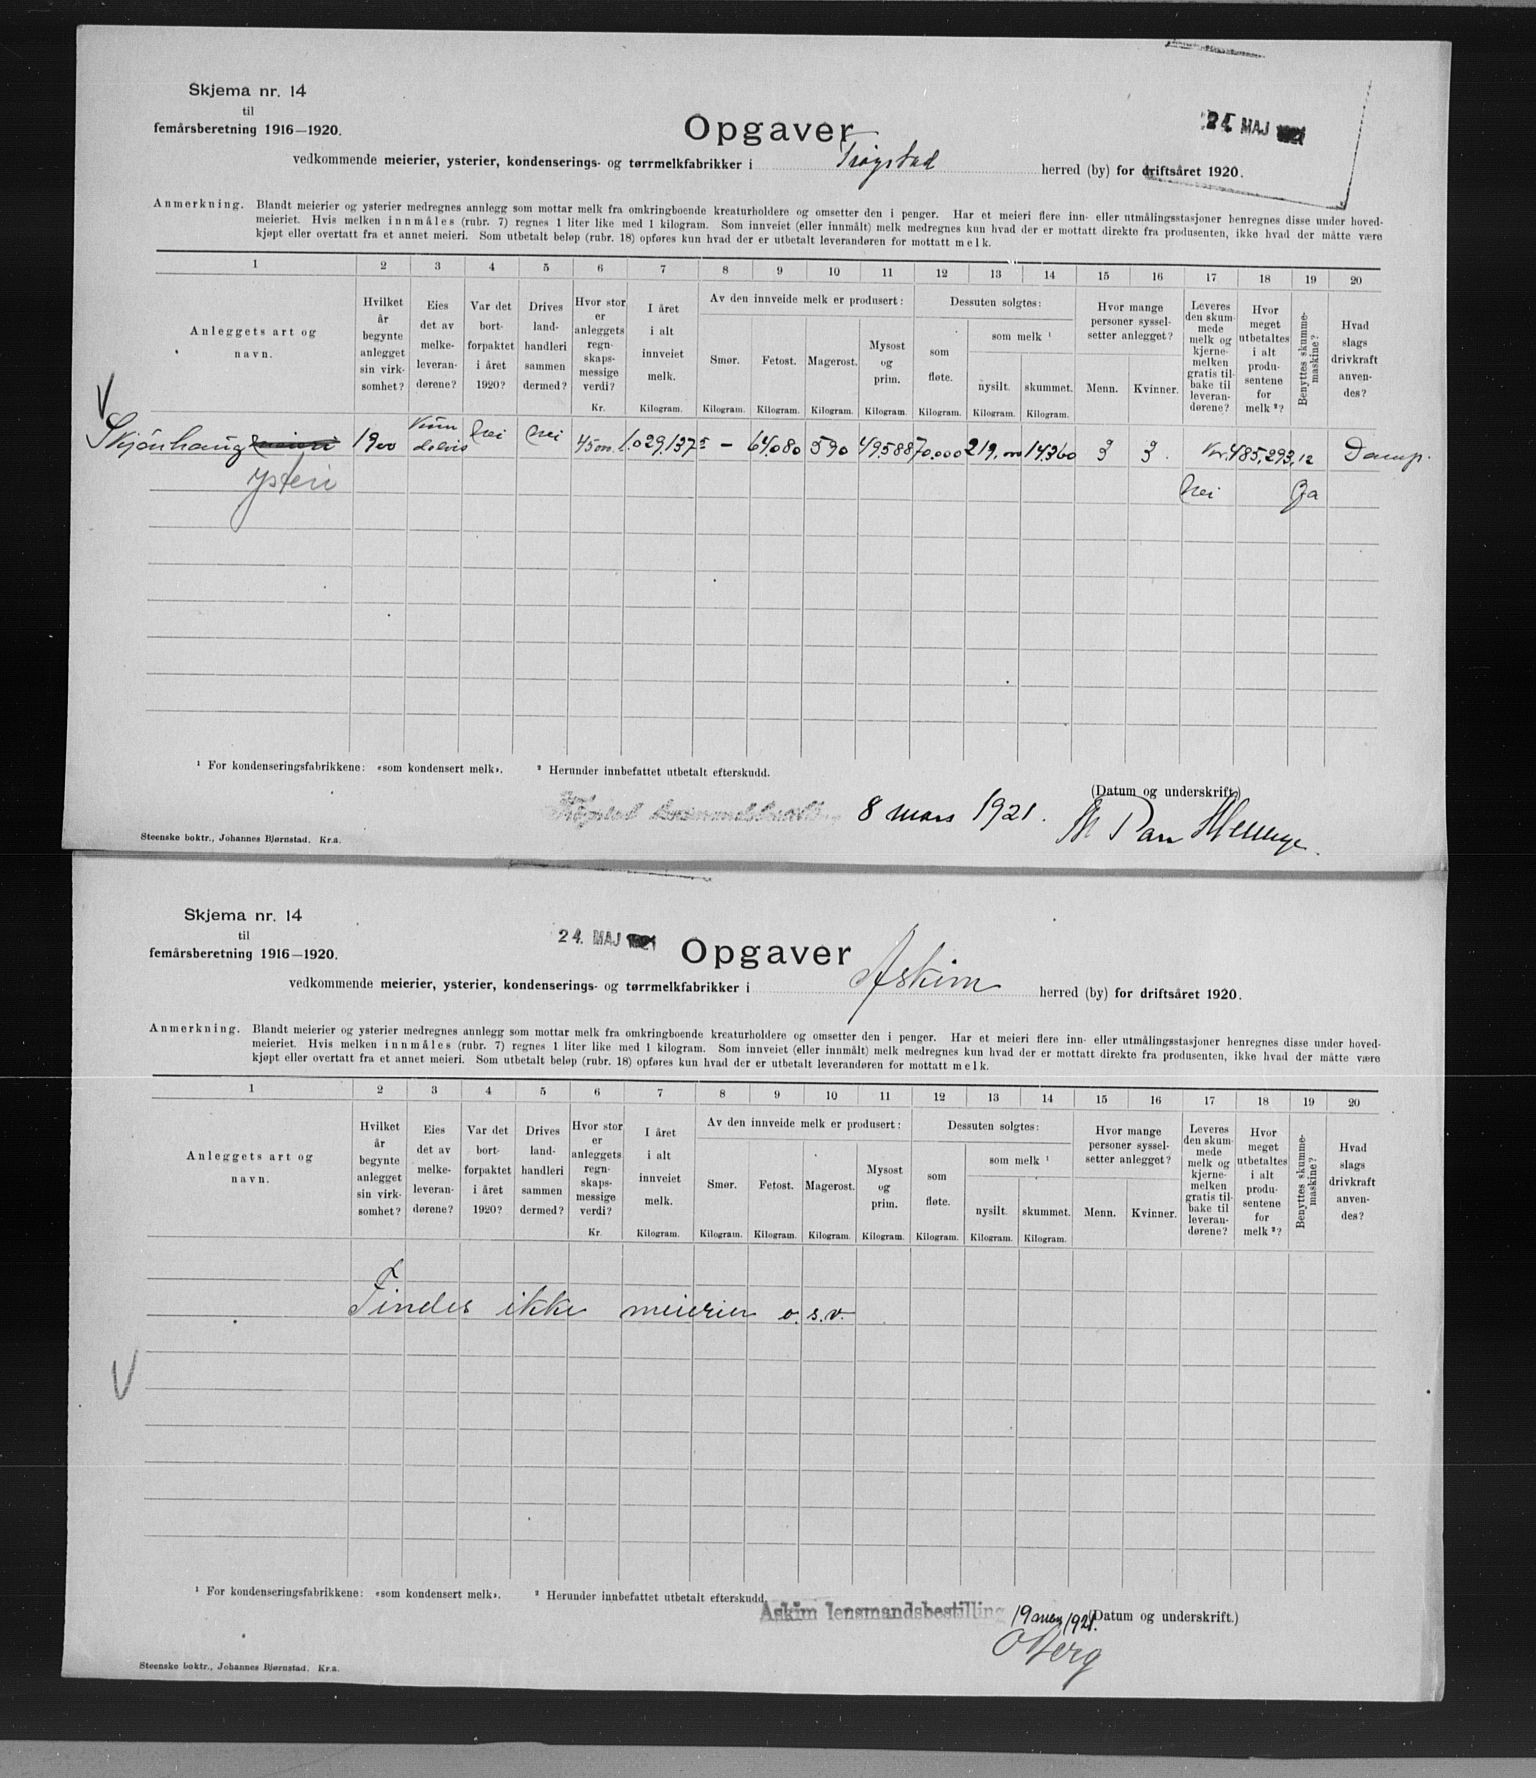 Skjema nr. 14
til
femårsberetning 1916—1920.
Opgaver
24. MAJ 1921
vedkommende meierier, ysterier, kondenserings- og tørrmelkfabrikker i Trøgstad herred (by) for driftsåret 1920.
Anmerkning. Blandt meierier og ysterier medregnes annlegg som mottar melk fra omkringboende kreaturholdere og omsetter den i penger. Har et meieri flere inn- eller utmålingsstasjoner henregnes disse under hoved-
meieriet. Hvis melken innmåles (rubr. 7) regnes 1 liter like med 1 kilogram. Som innveiet (eller innmålt) melk medregnes kun hvad der er mottatt direkte fra produsenten, ikke hvad der måtte være
kjøpt eller overtatt fra et annet meieri. Som utbetalt beløp (rubr. 18) opføres kun hvad der er utbetalt leverandøren for mottatt melk.
1 2 3 4 5 6 7 8 9 10 11 12 13 14 15 16 17 18 19 20
Anleggets art og
navn.
Hvilket
år
begynte
anlegget
sin virk-
somhet?
Eies
det av
melke-
leveran-
dørene?
Var det
bort-
forpaktet
i året
1920?
Drives
land-
handleri
sammen
dermed?
Hvor stor
er
anleggets
regn-
skaps-
messige
verdi?
Kr.
I året
i alt
innveiet
melk.
Kilogram.
Av den innveide melk er produsert:
Smør.
Kilogram.
Fetost.
Kilogram.
Magerost.
Kilogram.
Mysost
og
prim.
Kilogram.
Dessuten solgtes:
som
fløte.
Kilogram.
som melk ¹
nysilt.
Kilogram.
skummet.
Kilogram.
Hvor mange
personer syssel-
setter anlegget?
Menn.
Kvinner.
Leveres
den skum-
mede
melk og
kjerne-
melken
gratis til-
bake til
leveran-
dørene?
Hvor
meget
utbetaltes
i alt
produ-
sentene
for
melk ²?
Benyttes skumme-
maskine?
Hvad
slags
drivkraft
anven-
des?
Skjönhaug meieri 1900 delvis Nei Nei 45000. 1.029,137 5 — 64,080 590 49,588 70,000 219,000 14360 3 3. Kr. 485,293,12 Damp.
Ysteri Nei Ja
¹ For kondenseringsfabrikkene: «som kondensert melk». ² Herunder innbefattet utbetalt efterskudd.
(Datum og underskrift.)
Trøgstad lensmandsbestilling 8 mars 1921.
Steenske boktr., Johannes Bjørnstad. Kr.a.
Skjema nr. 14
til
femårsberetning 1916—1920.
24. MAJ 1921
Opgaver
vedkommende meierier, ysterier, kondenserings- og tørrmelkfabrikker i Askim herred (by) for driftsåret 1920.
Anmerkning. Blandt meierier og ysterier medregnes annlegg som mottar melk fra omkringboende kreaturholdere og omsetter den i penger. Har et meieri flere inn- eller utmålingsstasjoner henregnes disse under hoved-
meieriet. Hvis melken innmåles (rubr. 7) regnes 1 liter like med 1 kilogram. Som innveiet (eller innmålt) melk medregnes kun hvad der er mottatt direkte fra produsenten, ikke hvad der måtte være
kjøpt eller overtatt fra et annet meieri. Som utbetalt beløp (rubr. 18) opføres kun hvad der er utbetalt leverandøren for mottatt melk.
1 2 3 4 5 6 7 8 9 10 11 12 13 14 15 16 17 18 19 20
Anleggets art og
navn.
Hvilket
år
begynte
anlegget
sin virk-
somhet?
Eies
det av
melke-
leveran-
dørene?
Var det
bort-
forpaktet
i året
1920?
Drives
land-
handleri
sammen
dermed?
Hvor stor
er
anleggets
regn-
skaps-
messige
verdi?
Kr.
I året
i alt
innveiet
melk.
Kilogram.
Av den innveide melk er produsert:
Smør.
Kilogram.
Fetost.
Kilogram.
Magerost.
Kilogram.
Mysost
og
prim.
Kilogram.
Dessuten solgtes:
som
fløte.
Kilogram.
som melk ¹
nysilt.
Kilogram.
skummet.
Kilogram.
Hvor mange
personer syssel-
setter anlegget?
Menn.
Kvinner.
Leveres
den skum-
mede
melk og
kjerne-
melken
gratis til-
bake til
leveran-
dørene?
Hvor
meget
utbetaltes
i alt
produ-
sentene
for
melk ²?
Benyttes skumme-
maskine?
Hvad
slags
drivkraft
anven-
des?
Findes ikke meierier o. s. v.
¹ For kondenseringsfabrikkene: «som kondensert melk». ² Herunder innbefattet utbetalt efterskudd.
Askim lensmandsbestilling 19 1921. (Datum og underskrift.)
O Berg
Steenske boktr., Johannes Bjørnstad. Kr.a.